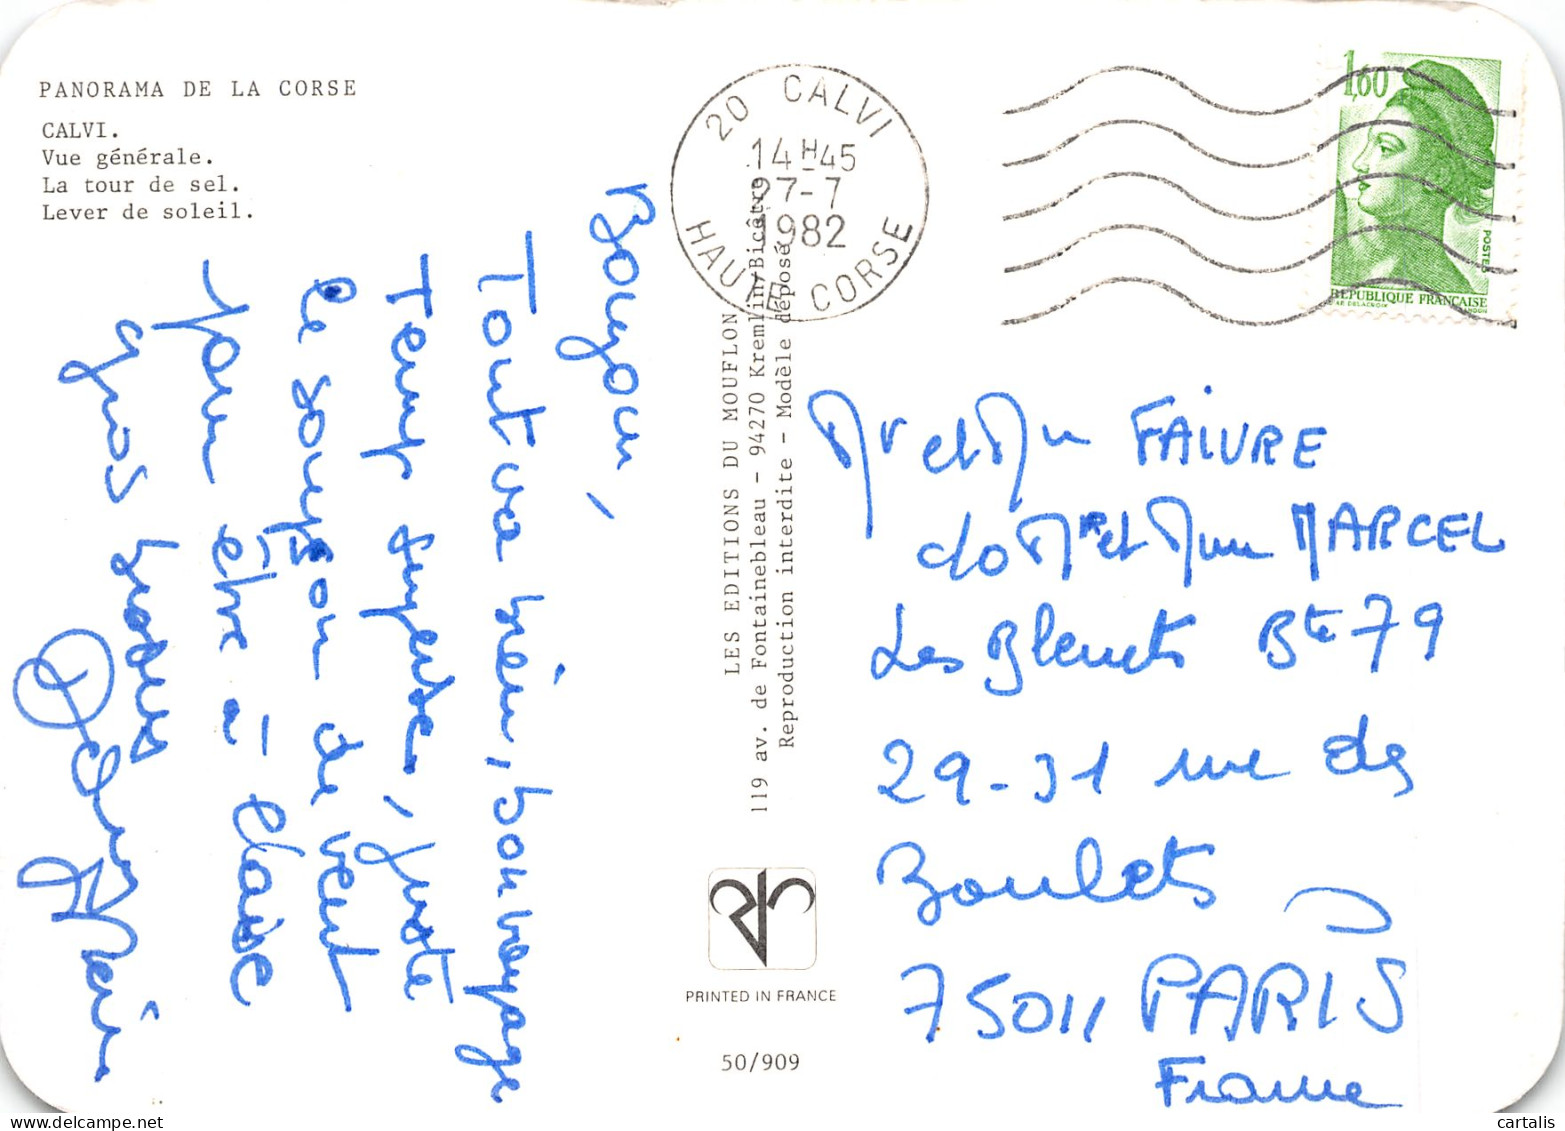 PANORAMA DE LA CORSE
CALVI.
Vue générale.
La tour de sel.
Lever de soleil.
20 CALVI
14H45
27-7
1982
HAUTE CORSE
1,60
POSTES
RÉPUBLIQUE FRANÇAISE
Bonjour,
Tout va bien, bon voyage
Temps superbe, juste
ce soupçon de vent
pour être à l'aise
gros bisous
LES EDITIONS DU MOUFLON
119 av. de Fontainebleau - 94270 Kremlin/Bicêtre
Reproduction interdite - Modèle déposé
PRINTED IN FRANCE
50/909
Mr et Mme FAIVRE
c/o Mr et Mme MARCEL
Les Bleuets Bte 79
29-31 rue des
Boulets
75011 PARIS
France
www.delcampe.net
cartalis